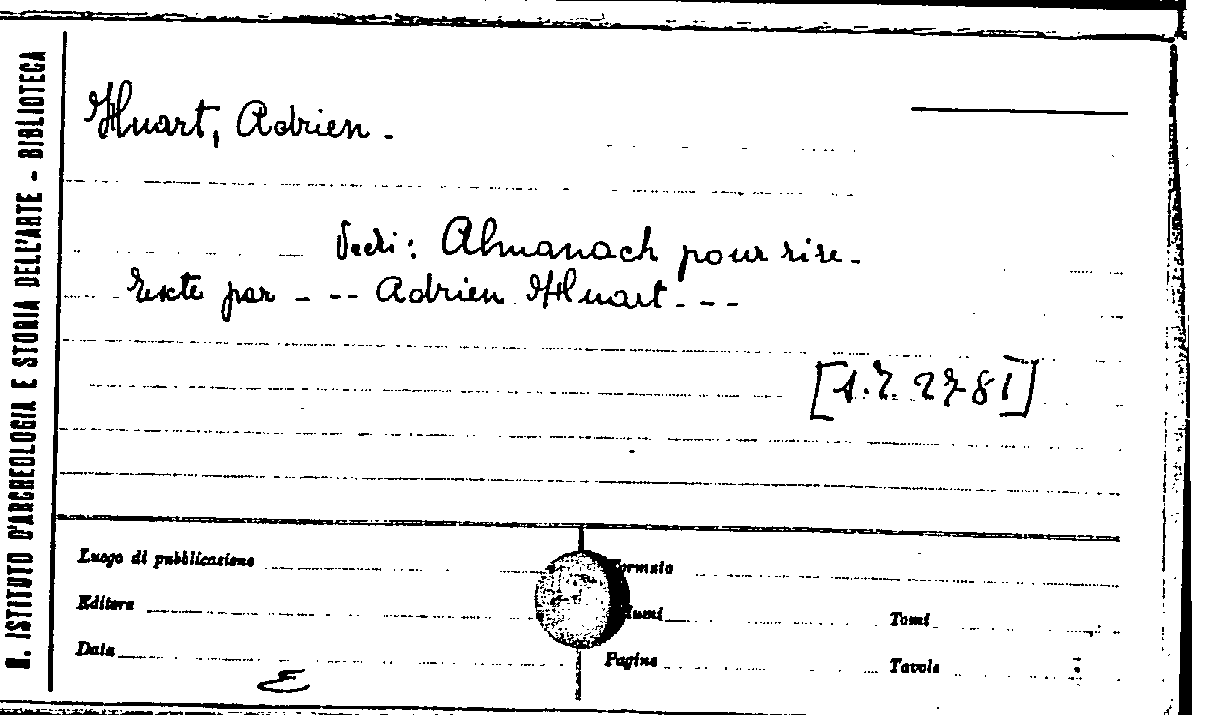 R. ISTITUTO D'ARCHEOLOGIA E STORIA DELL'ARTE - BIBLIOTECA
Huart, Adrien -
Vedi: Almanach pour rire -
Texte par - -- Adrien Huart - - -
[A.Z. 2781]
Luogo di pubblicazione
Formato
Editore
Tomi
Data
Pagine
Tavole
E